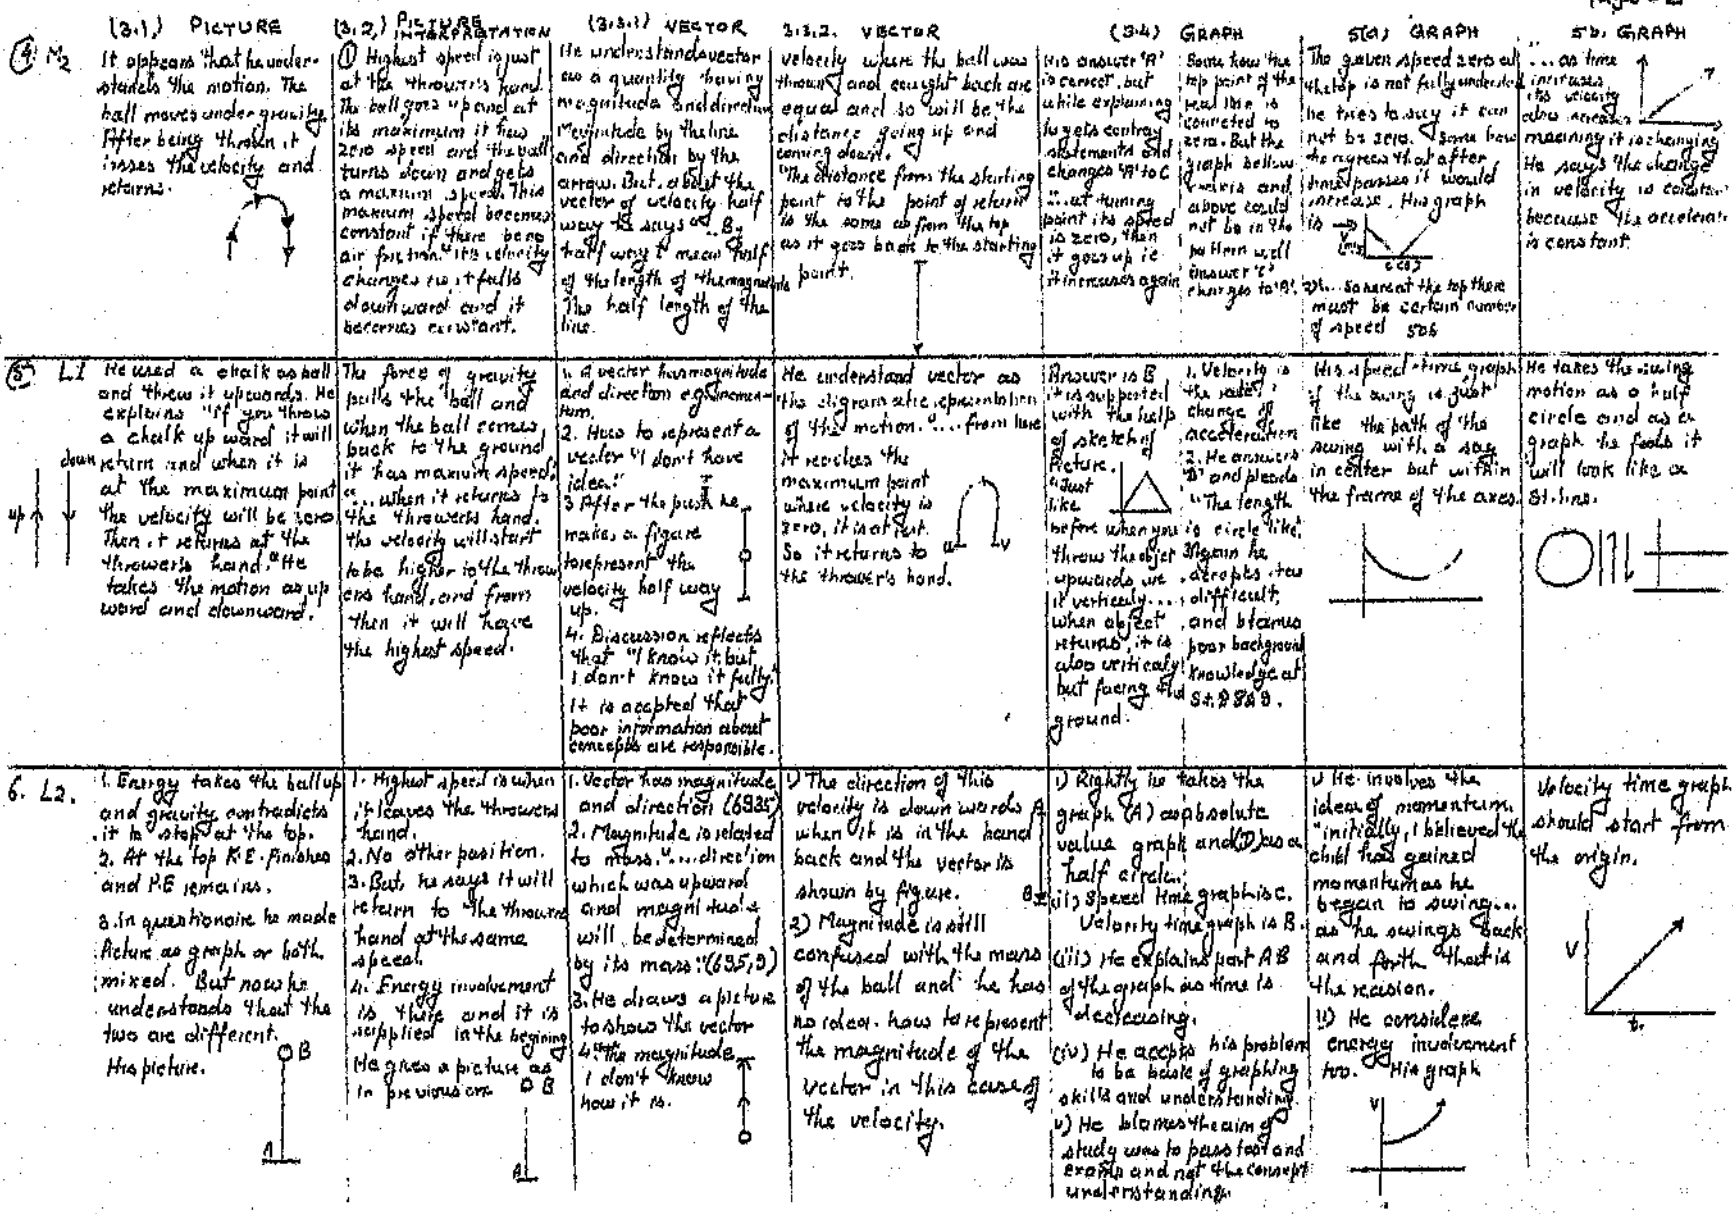 (3.1) PICTURE
(3.2) PICTURE INTERPRETATION
(3.3.1) VECTOR
3.3.2. VECTOR
(3.4) GRAPH
5(a) GRAPH
5b. GRAPH
4 M2
It appears that he under-
stands the motion. The
ball moves under gravity.
After being thrown it
losses the velocity and
returns.
① Highest speed is just
at the thrower's hand.
The ball goes up and at
its maximum it has
zero speed and the ball
turns down and gets
a maximum speed. This
maxium speed becomes
constant if there be no
air friction. "its velocity
changes as it falls
downward and it
becomes constant.
He understands vector
as a quantity having
magnitude and direction
Magnitude by the line
and direction by the
arrow. But, about the
vector of velocity half
way he says "... By
half way I mean half
of the length of the magnitude
The half length of the
line.
velocity where the ball was
thrown and caught back are
equal and so will be the
distance going up and
coming down.
"The distance from the starting
point to the point of return
is the same as from the top
as it goes back to the starting
point.
His answer 'A'
is correct, but
while explaining
he gets contray
statements and
changes 'A' to C
"... at turning
point its speed
is zero, then
it goes up ie
it increases again
Some how the
top point of the
real life is
connected to
zero. But the
graph bellow
x-axis and
above could
not be in the
pattern well
answer 'C'
changes to 'A'.
The given speed zero at
the top is not fully understood
he tries to say it can
not be zero. Some how
he agrees that after
time passes it would
increase. His graph
is
must be certain number
of speed 506
... as time
increases
its velocity
also increases
meaning it is changing
He says the change
in velocity is constant
because the acceleration
is constant.
5 L1
He used a chalk as ball
and threw it upwards. He
explains "If you throw
a chalk up ward it will
return and when it is
at the maximum point
the velocity will be zero
Then it returns at the
thrower's hand." He
takes the motion as up
ward and downward.
down
up
The force of gravity
pulls the ball and
when the ball comes
back to the ground
it has maxium speed.
"... when it returns to
the throwers hand.
the velocity will start
to be higher to the throw
ers hand, and from
then it will have
the highest speed.
1. A vector has magnitude
and direction eg. momen-
tum.
2. How to represent a
vector "I don't have
idea."
3 After the push he
makes a figure
to represent the
velocity half way
up.
4. Discussion reflects
that "I know it but
I don't know it fully."
It is accepted that
poor information about
concepts are responsible.
He understand vector as
the digramatic representation
of the motion. "... from here
it reaches the
maximum point
where velocity is
zero, it is at rest.
So it returns to
the thrower's hand.
u v
Answer is B
it is supported
with the help
of sketch of
Picture.
"Just
like
before when you
throw the object
upwards we
it verticaly...
when object
returns, it is
also verticaly
but facing the
ground.
1. Velocity is
the rate
change of
acceleration
2. He answers
'D' and pleads
"The length
is circle like,
Again he
accepts it as
difficult,
and blames
poor background
knowledge at
St. 8 & 9.
His speed-time graph
of the swing is just
like the path of the
swing with a sag
in center but within
the frame of the axes.
He takes the swing
motion as a half
circle and as a
graph he feels it
will look like a
St. line.
6. L2.
1. Energy takes the ball up
and gravity contradicts
it to stop at the top.
2. At the top K.E. finishes
and P.E remains.
3. In questionaire he made
Picture as graph or both
mixed. But now he
understands that the
two are different.
His picture.
B
A
1. Highest speed is when
it leaves the throwers
hand.
2. No other position.
3. But, he says it will
return to the throwers
hand at the same
speed.
4. Energy involvement
is there and it is
supplied in the begining
He gives a picture as
in previous one
B
A
1. Vector has magnitude
and direction (6935)
2. Magnitude is related
to mass. "... direction
which was upward
and magnitude
will be determined
by its mass." (695,9)
3. He draws a picture
to show the vector
4. "The magnitude
I don't know
how it is.
1) The direction of this
velocity is down wards
when it is in the hand
back and the vector is
shown by figure.
A
B
2) Magnitude is still
confused with the mass
of the ball and he has
no idea. how to represent
the magnitude of the
vector in this case of
the velocity.
i) Rightly he takes the
graph (A) as absolute
value graph and (D) as a
half circle.
ii) Speed time graph is C.
Velocity time graph is B.
(iii) He explains part AB
of the graph as time is
decreasing.
(iv) He accepts his problem
to be basic of graphing
skills and understanding.
v) He blames the aim of
study was to pass test and
exams and not the concept
understanding.
i) He involves the
idea of momentum.
"initially, I believed the
child has gained
momentum as he
began to swing...
as he swings back
and forth that is
the reason.
ii) He considers
energy involvement
too. His graph
V
Velocity time graph
should start from
the origin.
V
t.